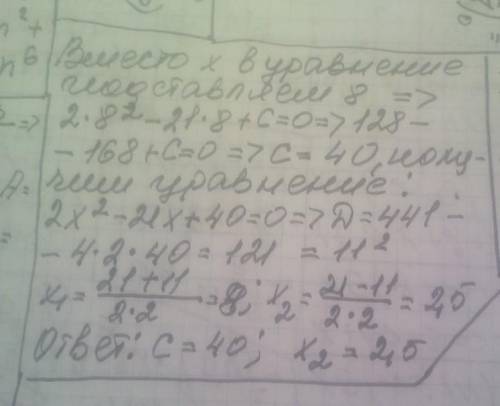 n²+
n⁶
=>
A=
=
Вместо x в уравнение
подставляем 8 =>
2·8²-21·8+C=0=>128-
-168+C=0=>C=40, полу-
чим уравнение:
2x²-21x+40=0=>D=441-
-4·2·40=121=11²
x₁=21+11/2·2=8; x₂=21-11/2·2=2,5
Ответ: C=40; x₂=2,5